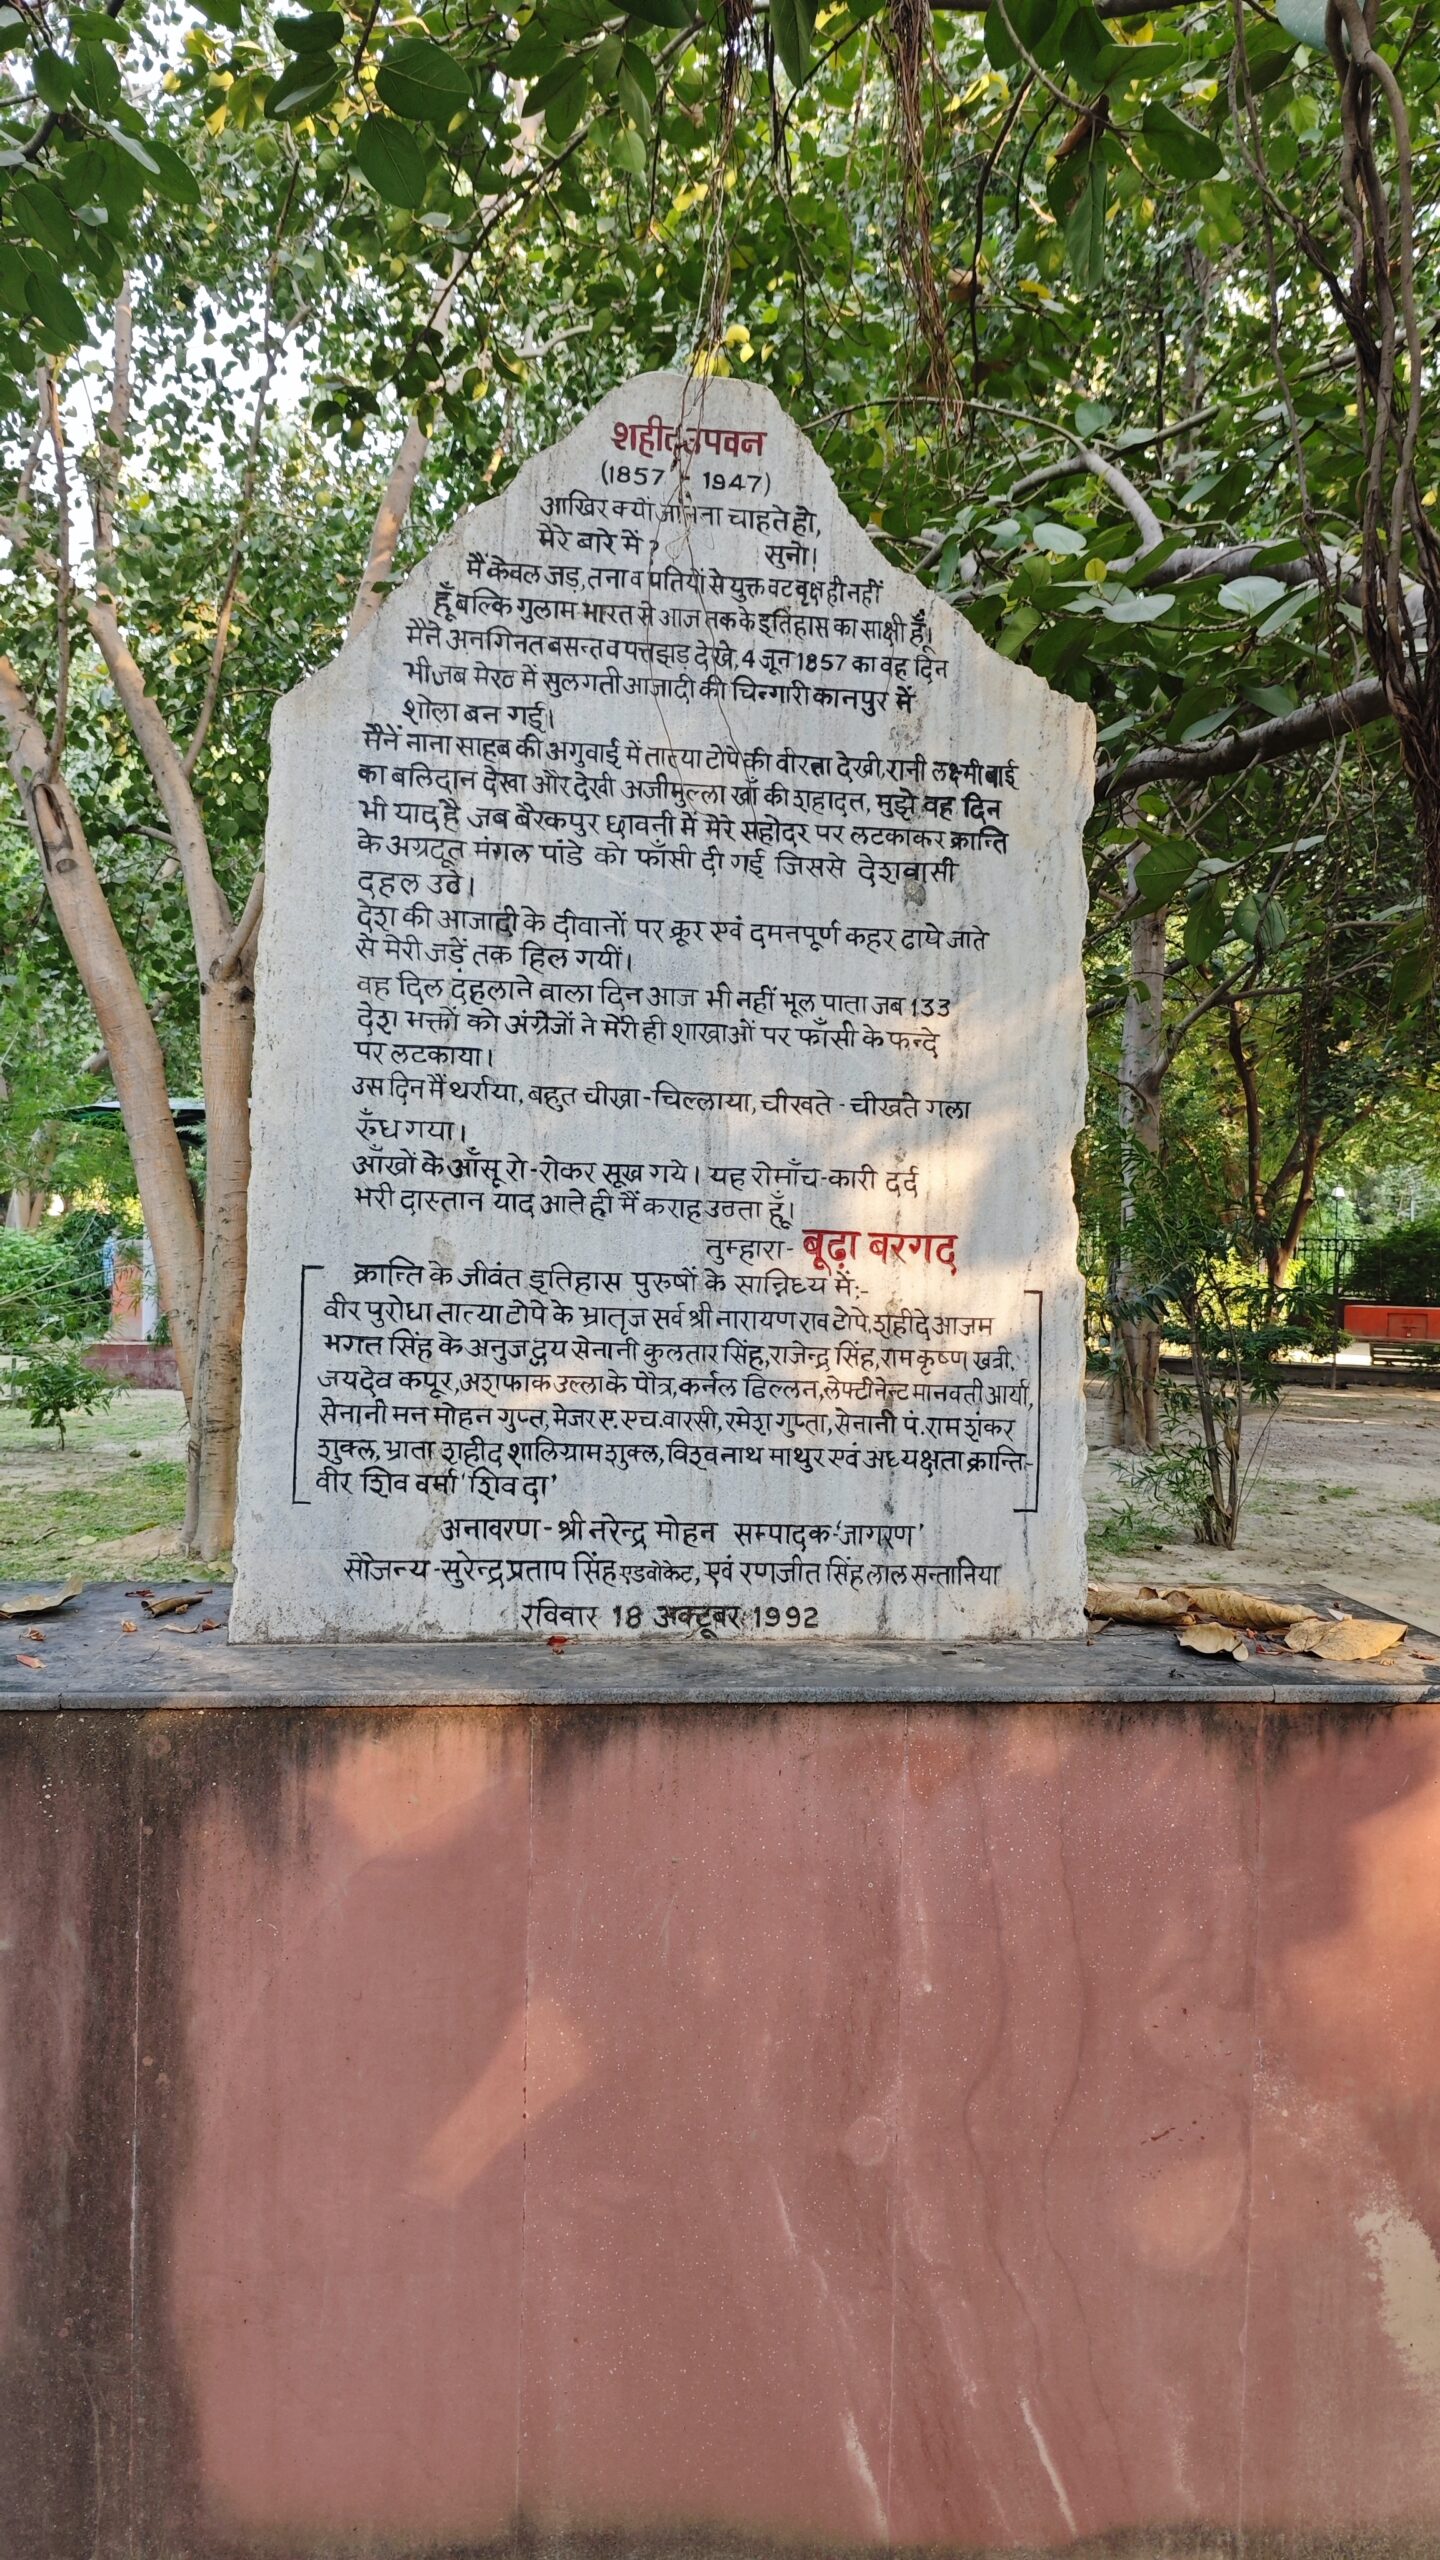 शहीद उपवन
(1857 - 1947)
आखिर क्यों जानना चाहते हो,
मेरे बारे में ? सुनो।
मैं केवल जड़, तना व पतियों से युक्त वट वृक्ष ही नहीं
हूँ बल्कि गुलाम भारत से आज तक के इतिहास का साक्षी हूँ।
मैंने अनगिनत बसन्त व पतझड़ देखे, 4 जून 1857 का वह दिन
भी जब मेरठ में सुलगती आजादी की चिन्गारी कानपुर में
शोला बन गई।
मैनें नाना साहब की अगुवाई में तात्या टोपे की वीरता देखी, रानी लक्ष्मी बाई
का बलिदान देखा और देखी अजीमुल्ला खाँ की शहादत, मुझे वह दिन
भी याद है जब बैरकपुर छावनी में मेरे सहोदर पर लटकाकर क्रान्ति
के अग्रदूत मंगल पांडे को फाँसी दी गई जिससे देशवासी
दहल उठे।
देश की आजादी के दीवानों पर क्रूर एवं दमनपूर्ण कहर ढाये जाते
से मेरी जड़ें तक हिल गयीं।
वह दिल दहलाने वाला दिन आज भी नहीं भूल पाता जब 133
देश भक्तों को अंग्रेजों ने मेरी ही शाखाओं पर फाँसी के फन्दे
पर लटकाया।
उस दिन मैं थर्राया, बहुत चीखा-चिल्लाया, चीखते-चीखते गला
रुँध गया।
आँखों के आँसू रो-रोकर सूख गये। यह रोमाँच-कारी दर्द
भरी दास्तान याद आते ही मैं कराह उठता हूँ।
तुम्हारा- बूढ़ा बरगद
क्रान्ति के जीवंत इतिहास पुरुषों के सान्निध्य में:-
वीर पुरोधा तात्या टोपे के भ्रातृज सर्व श्री नारायण राव टोपे, शहीदे आजम
भगत सिंह के अनुज द्वय सेनानी कुलतार सिंह, राजेन्द्र सिंह, राम कृष्ण खत्री,
जयदेव कपूर, अशफाक उल्ला के पौत्र, कर्नल ढिल्लन, लेफ्टीनेन्ट मानवती आर्या,
सेनानी मन मोहन गुप्त, मेजर ए. एच. वारसी, रमेश गुप्ता, सेनानी पं. राम शंकर
शुक्ल, भ्राता शहीद शालिग्राम शुक्ल, विश्वनाथ माथुर एवं अध्यक्षता क्रान्ति-
वीर शिव वर्मा 'शिव दा'
अनावरण - श्री नरेन्द्र मोहन सम्पादक-'जागरण'
सौजन्य - सुरेन्द्र प्रताप सिंह एडवोकेट, एवं रणजीत सिंह लाल सन्तानिया
रविवार 18 अक्टूबर 1992